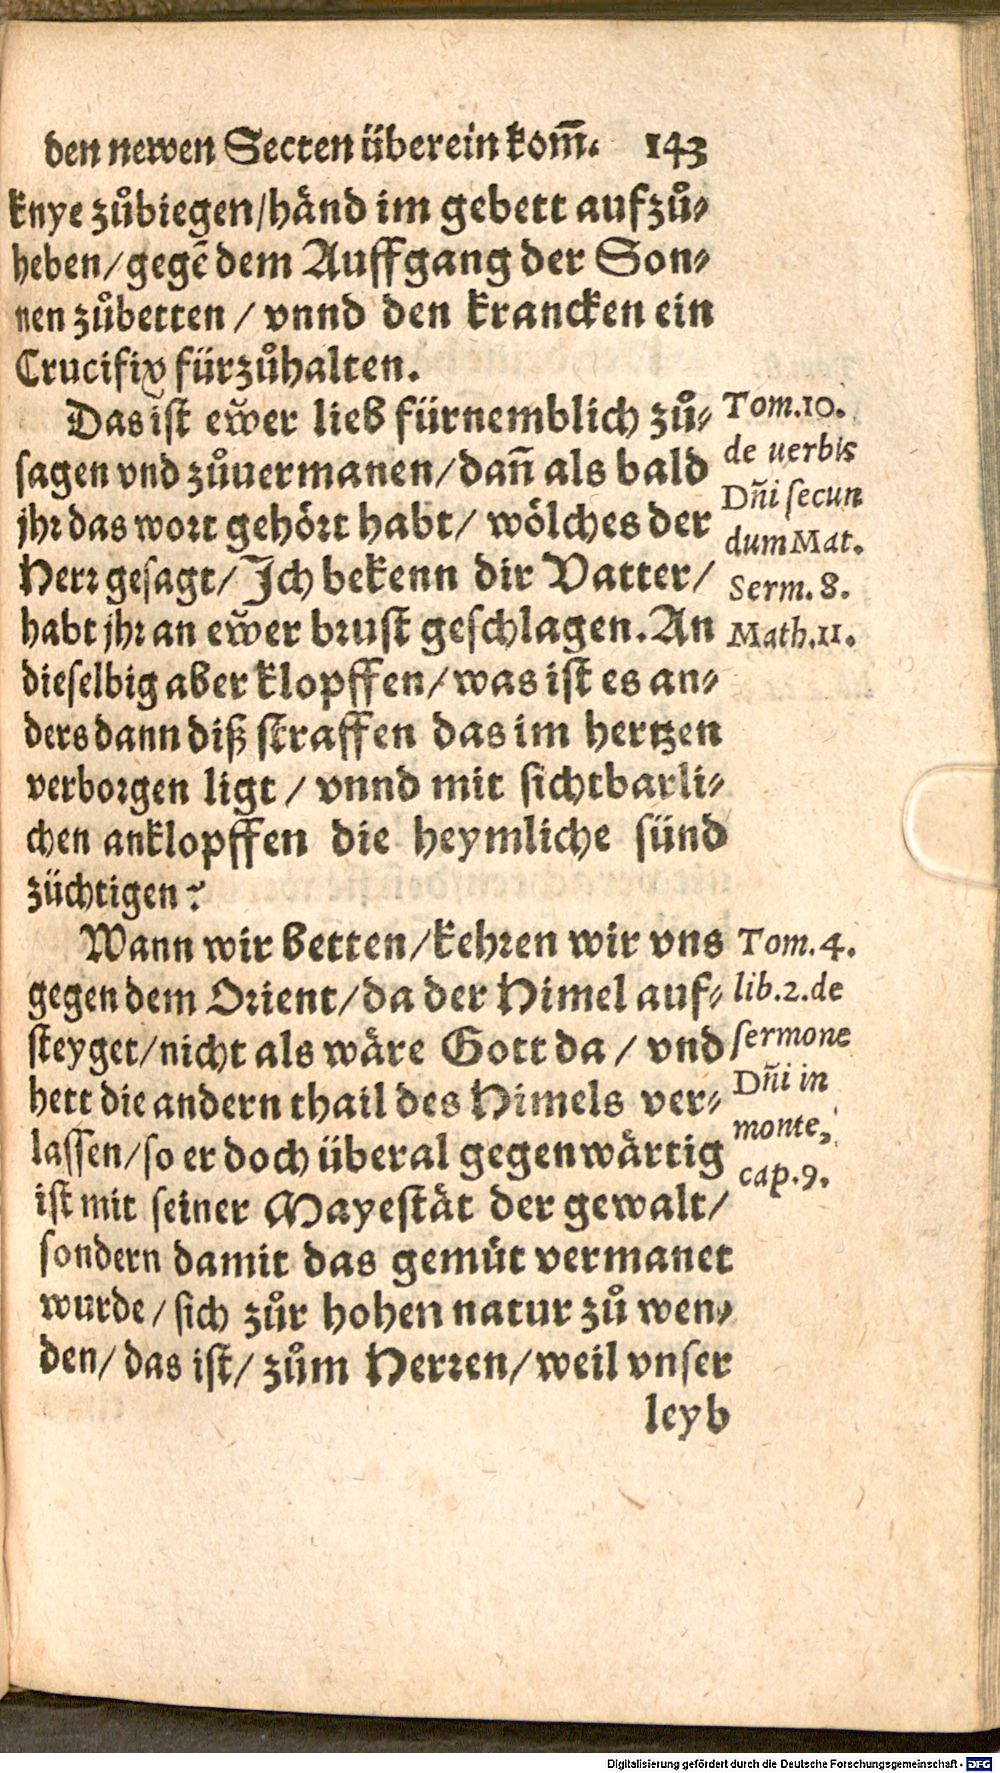 den newen Secten überein kom̃. 143
knye zůbiegen/händ im gebett aufzů-
heben/gegẽ dem Auffgang der Son-
nen zůbetten / vnnd den krancken ein
Crucifix fürzůhalten.
Das ist ew̃er lieb fürnemblich zů-
sagen vnd zůuermanen/dañ als bald
jhr das wort gehört habt/ wölches der
Herr gesagt/ Ich bekenn dir Vatter/
habt jhr an ew̃er brust geschlagen. An
dieselbig aber klopffen/was ist es an-
ders dann diß straffen das im hertzen
verborgen ligt / vnnd mit sichtbarli-
chen anklopffen die heymliche sünd
züchtigen?
Tom.10.
de uerbis
Dñi secun
dum Mat.
Serm. 8.
Math.11.
Wann wir betten/kehren wir vns
gegen dem Orient/da der Himel auf-
steyget/nicht als wäre Gott da / vnd
hett die andern thail des Himels ver-
lassen/so er doch überal gegenwärtig
ist mit seiner Mayestät der gewalt/
sondern damit das gemüt vermanet
wurde/ sich zůr hohen natur zů wen-
den/ das ist/ zům Herren/weil vnser
Tom. 4.
lib.2.de
sermone
Dñi in
monte,
cap.9.
leyb
Digitalisierung gefördert durch die Deutsche Forschungsgemeinschaft - DFG